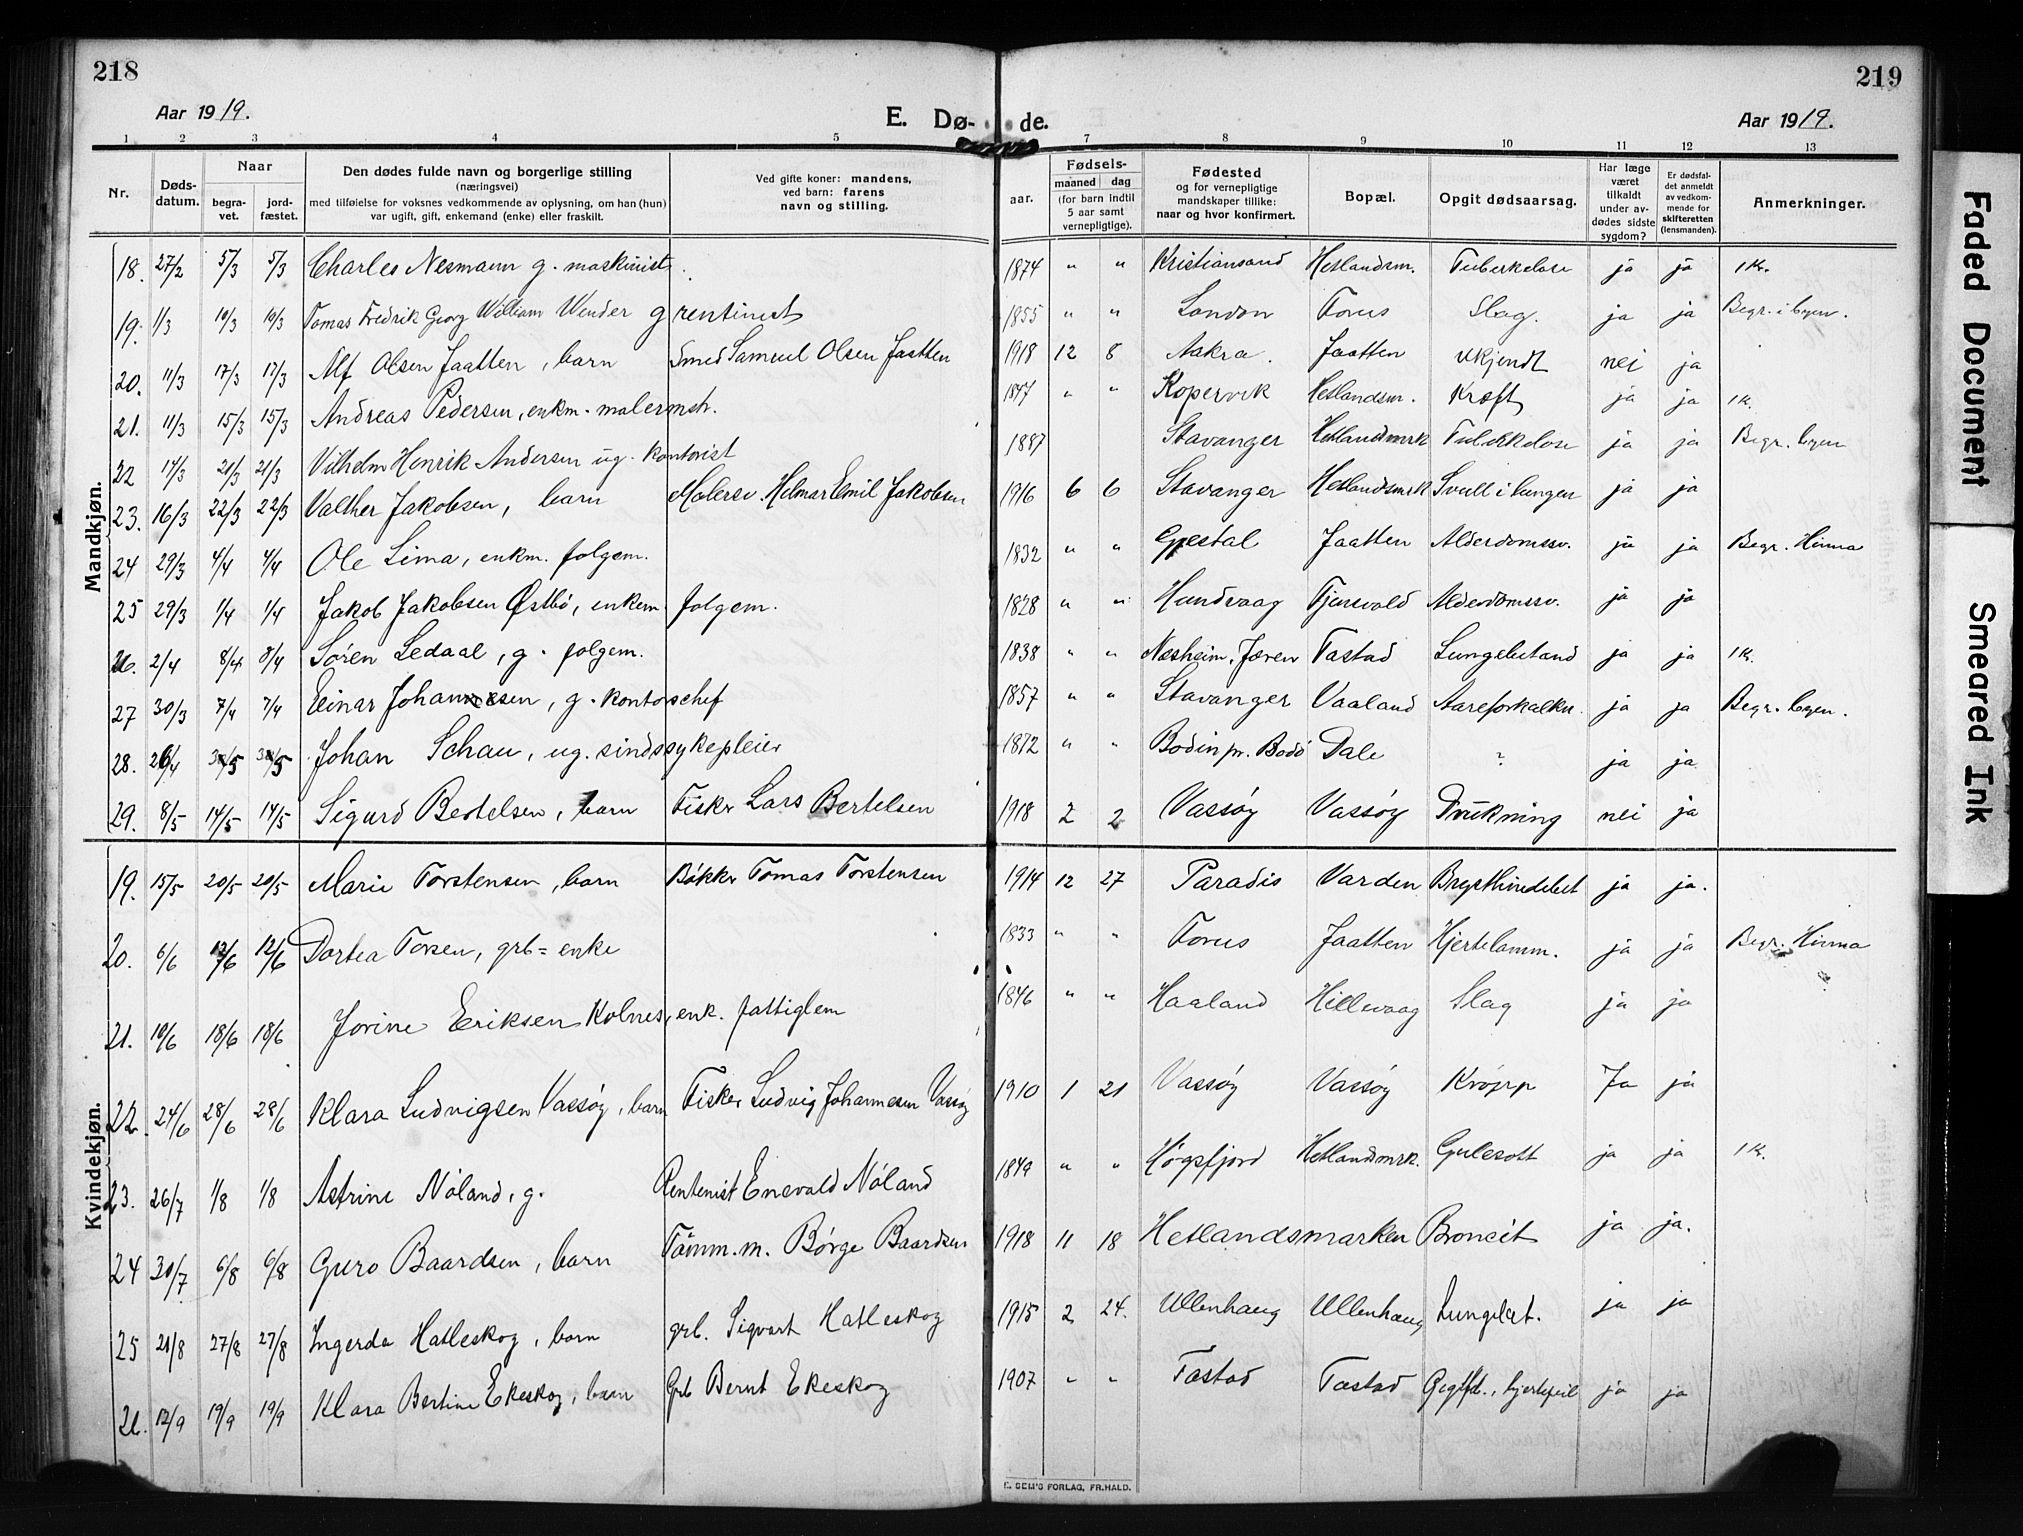 218
219
Aar 1919.
E. Dø- de.
Aar 1919.
1 2 3 4 5 7 8 9 10 11 12 13
Nr.
Døds-datum.
Naar
begra-vet.
jord-fæstet.
Den dødes fulde navn og borgerlige stilling
(næringsvei)
med tilføielse for voksnes vedkommende av oplysning, om han (hun)
var ugift, gift, enkemand (enke) eller fraskilt.
Ved gifte koner: mandens,
ved barn: farens
navn og stilling.
Fødsels-
aar.
maaned dag
(for barn indtil
5 aar samt
vernepligtige).
Fødested
og for vernepligtige
mandskaper tillike:
naar og hvor konfirmert.
Bopæl.
Opgit dødsaarsag.
Har læge
været
tilkaldt
under av-
dødes sidste
sygdom?
Er dødsfal-
det anmeldt
av vedkom-
mende for
skifteretten
(lensmanden).
Anmerkninger.
Mandkjøn.
18. 27/2 5/3 5/3 Charles Nesmann g. maskinist 1874 " " Kristiansand Hetlandsm. Tuberkelose ja ja 1 K.
19. 1/3 10/3 10/3 Tomas Fredrik Georg William Wender g rentinest 1855 " " London Forus Slag. ja ja Begr. i byen.
20. 11/3 17/3 17/3 Alf Olsen Jaatten, barn Smed Samuel Olsen Jaatten 1918 12 8 Aakra. Jaatten ukjendt nei ja
21. 11/3 15/3 15/3 Andreas Pedersen, enkm. malermstr. 1847 " " Kopervik Hetlandsm. Kræft ja ja 1 K.
22 14/3 21/3 21/3 Vilhelm Henrik Andersen ug. kontorist 1887 Stavanger Hetlandsmrk Tuberkelose ja ja Begr. byen
23. 16/3 22/3 22/3 Valther Jakobsen, barn Malersv. Helmar Emil Jakobsen 1916 6 6 Stavanger Hetlandsmrk Svull i lungen ja ja
24 29/3 4/4 4/4 Ole Lima, enkm. folgem. 1832 " " Gjestal Jaatten Alderdomssv. ja ja Begr. Hinna
25 29/3 1/4 1/4 Jakob Jakobsen Østbö, enkem. folgem. 1828 " " Hundvaag Tjensvold Alderdomssv. ja ja
26. 2/4 8/4 8/4 Sören Ledaal, g. folgem. 1838 " " Næsheim, Jæren Tastad Lungebetænd ja ja 1 K.
27 30/3 7/4 7/4 Einar Johannesen, g. kontorschef 1857 " " Stavanger Vaaland Aareforkalkn. ja ja Begr. byen.
28. 26/4 3/5 3/5 Johan Schau, ug. sindssykepleier 1872 " " Bodin pr. Bodö Dale ? ja ja
29. 8/5 14/5 14/5 Sigurd Bertelsen, barn Fisker Lars Bertelsen 1918 2 2 Vassöy Vassöy Drukning nei ja
Kvindekjøn.
19. 15/5 20/5 20/5 Marie Torstensen, barn Bökker Tomas Torstensen 1914 12 27 Paradis Varden Brysthindebet ja ja.
20. 6/6 12/6 12/6 Dortea Torsen, grb= enke 1833 " " Forus Jaatten Hjertelamm. ja ja Begr. Hinna
21. 10/6 18/6 18/6 Jorine Eriksen Kolnes, enk. fattiglem 1846 " " Haaland Hillevaag Slag ja ja
22. 24/6 28/6 28/6 Klara Ludvigsen Vassöy, barn Fisker Ludvig Johannesen Vassöy 1910 1 21 Vassöy Vassöy Kröpp Ja ja
23. 26/7 1/8 1/8 Astrine Nöland, g. Rentenist Enevald Nöland 1849 " " Högsfjord Hetlandsmrk. Gulesott ja ja 1 K.
24 30/7 6/8 6/8 Guro Baardsen, barn Tömm.m. Börge Baardsen 1918 11 18 Hetlandsmarken Broncit ja ja.
25 21/8 27/8 27/8 Ingerda Hatleskog, barn grb. Sigvart Hatleskog 1915 2 24. Ullenhaug Ullenhaug Lungebet. ja ja
26. 12/9 19/9 19/9 Klara Bertine Ekeskog, barn Grb Bernt Ekeskog 1907 " " Tastad Tastad Gigtfeb., hjertefeil ja ja
E. SEM'S FORLAG, FR.HALD.
Faded Document
Smeared Ink